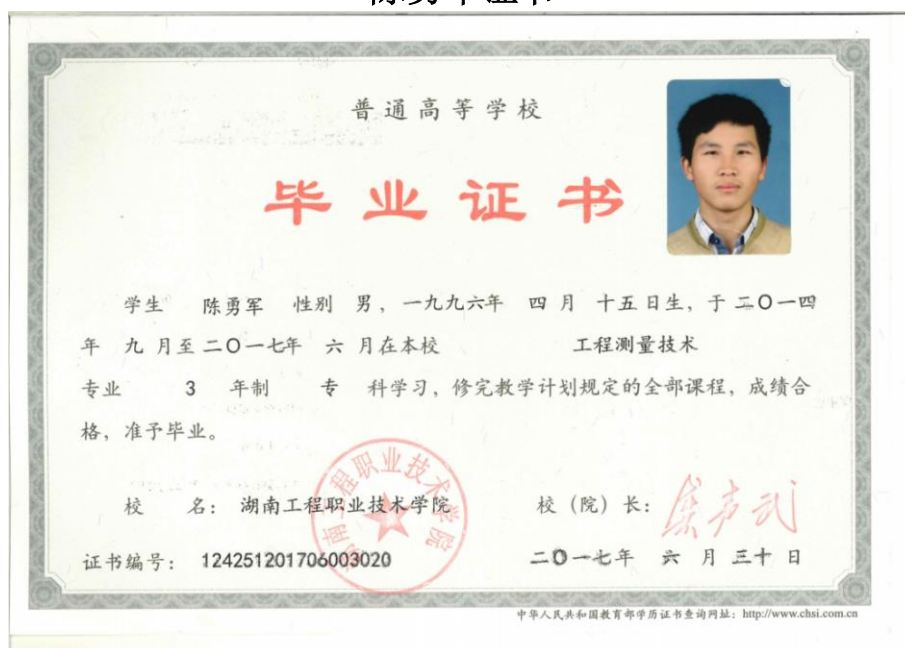 普通高等学校
毕业证书
学生 陈勇军 性别 男，一九九六年 四 月 十五日生，于 二〇一四
年 九 月至 二〇一七年 六 月在本校 工程测量技术
专业 3 年制 专 科学习，修完教学计划规定的全部课程，成绩合
格，准予毕业。
湖南工程职业技术学院
校 名：湖南工程职业技术学院 校（院）长：
证书编号：124251201706003020 二〇一七年 六 月 三十 日
中华人民共和国教育部学历证书查询网址：http://www.chsi.com.cn